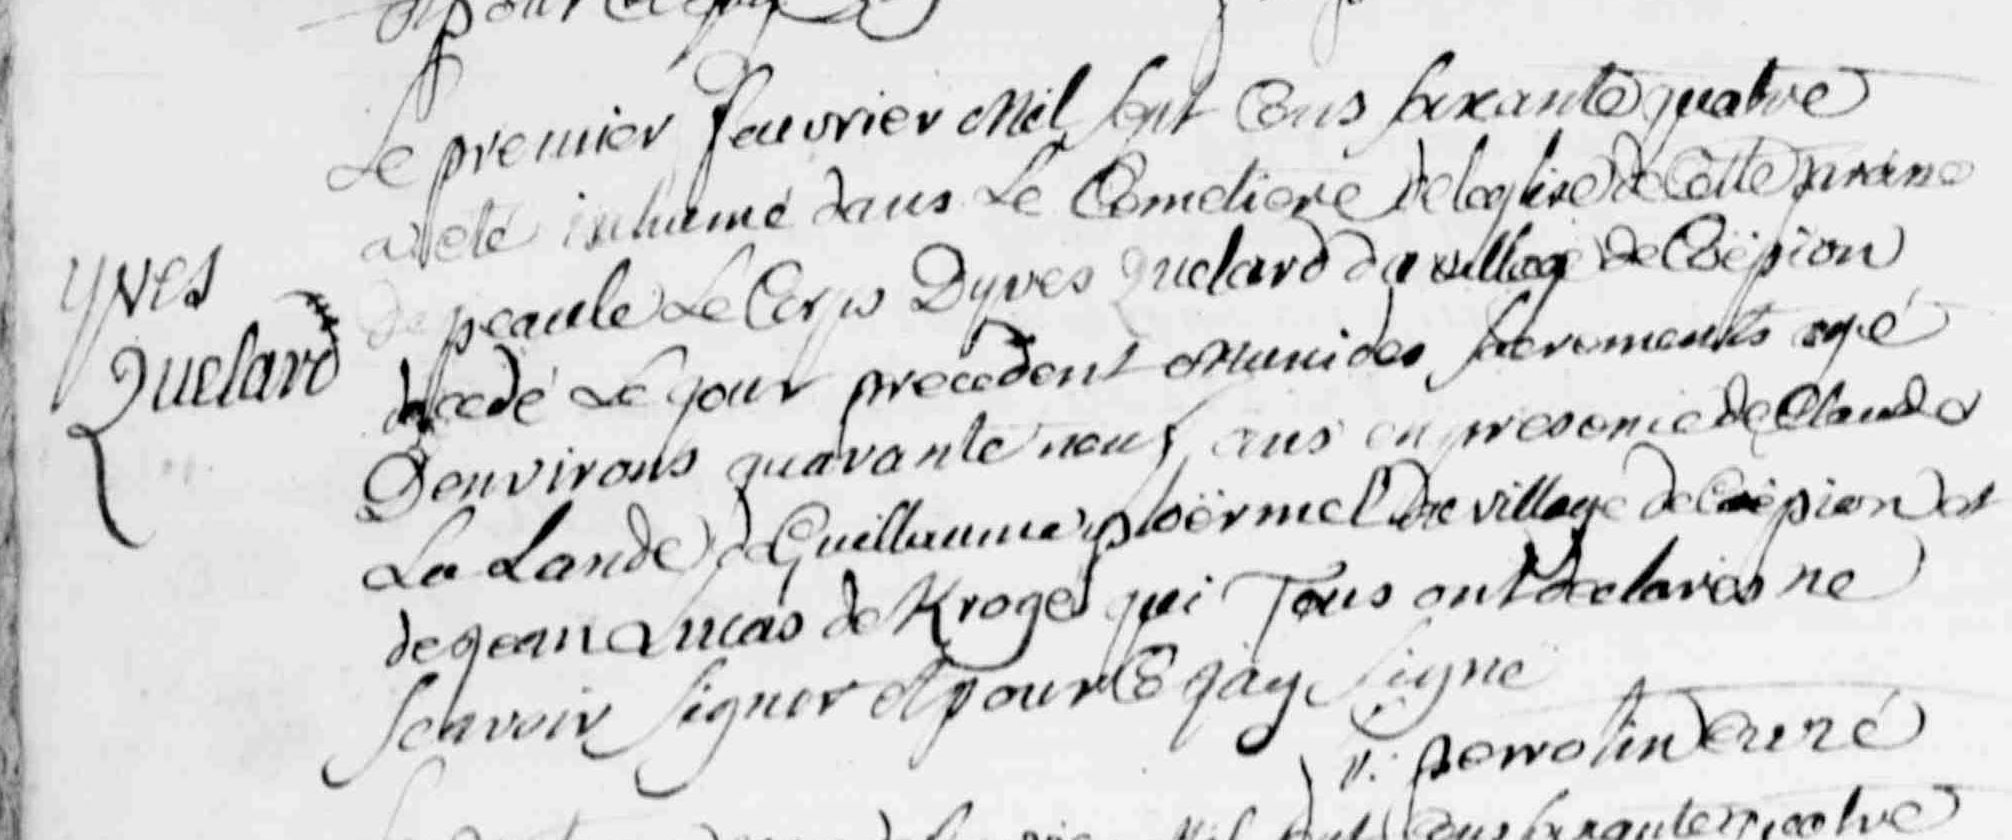 et pour ce
Le premier fauvrier Mil Sept Cens soixante quatre
a eté inhumé dans Le Cemetiere de leglise de Cette
de peaule Le Corps Dyves Quelard du village de Crépion
decedé Le jour precedent muni des sacrements agé
Denvirons quarante neuf ans en presence de Claude
La Lande de Guillaume ploërmel du village de Crépion et
de jean Lucas de Kroge qui Tous ont declarés ne
scavoir signer et pour Ce jay signé
Yves
Quelard
perrotin curé
Mil Sept Cens soixante quatre